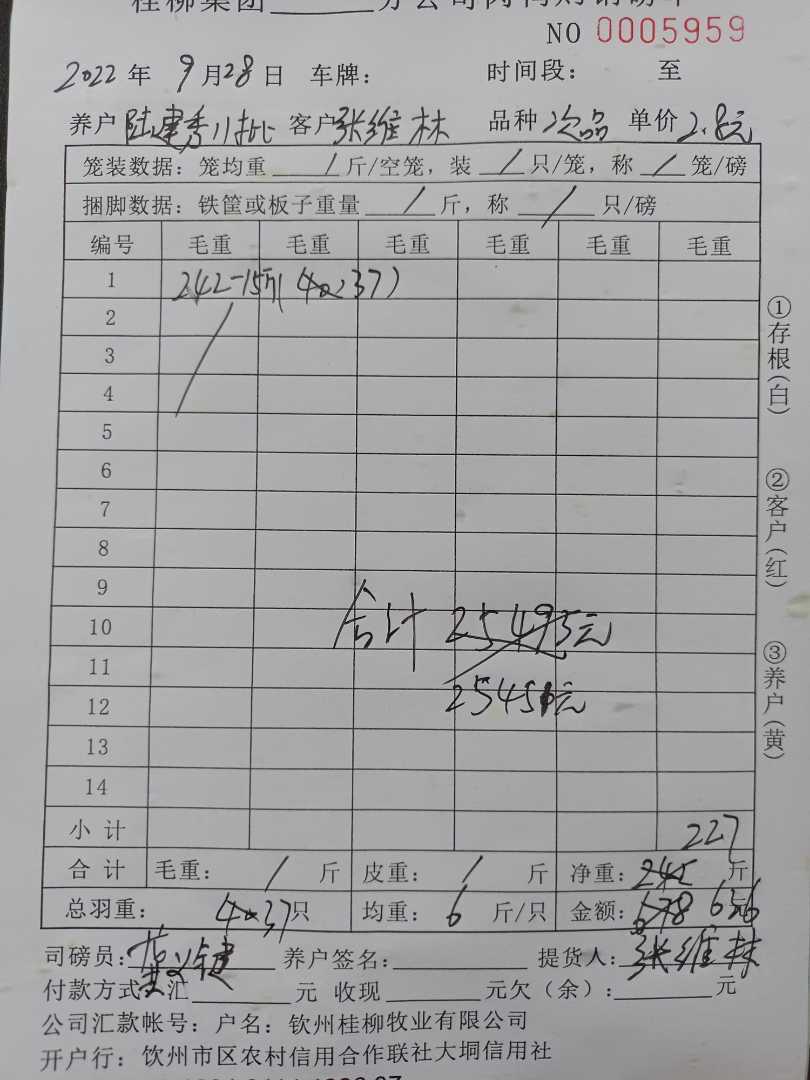 桂柳集团 分公司肉鸭购销磅单
NO 0005959
2022年 9月28日 车牌: 时间段: 至
养户 陆建秀 客户 张维林 品种 次品 单价 2.8元
笼装数据: 笼均重 / 斤/空笼, 装 / 只/笼, 称 / 笼/磅
捆脚数据: 铁筐或板子重量 / 斤, 称 / 只/磅
编号 毛重 毛重 毛重 毛重 毛重 毛重
1 242-15斤(40 37)
2
3
4
5
6
7
8
9
10 合计 25493元
11
12 25451元
13
14
小计 227
合计 毛重: / 斤 皮重: / 斤 净重: 242 斤
总羽重: 40 37只 均重: 6 斤/只 金额: 678 636
司磅员: 养户签名: 提货人: 张维林
付款方式: 汇 元 收现 元欠(余): 元
公司汇款帐号: 户名: 钦州桂柳牧业有限公司
开户行: 钦州市区农村信用合作联社大垌信用社
①存根(白)
②客户(红)
③养户(黄)